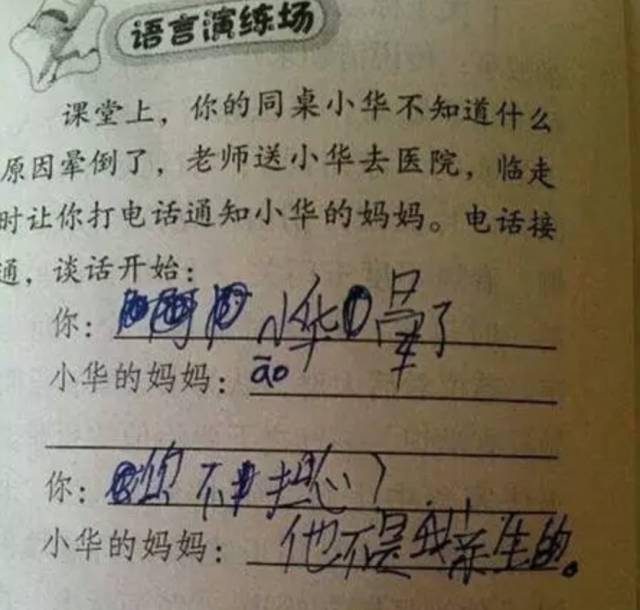 语言演练场
课堂上，你的同桌小华不知道什么
原因晕倒了，老师送小华去医院，临走
时让你打电话通知小华的妈妈。电话接
通，谈话开始：
你：小华晕了
小华的妈妈：āo
你：你不担心？
小华的妈妈：他不是我亲生的。